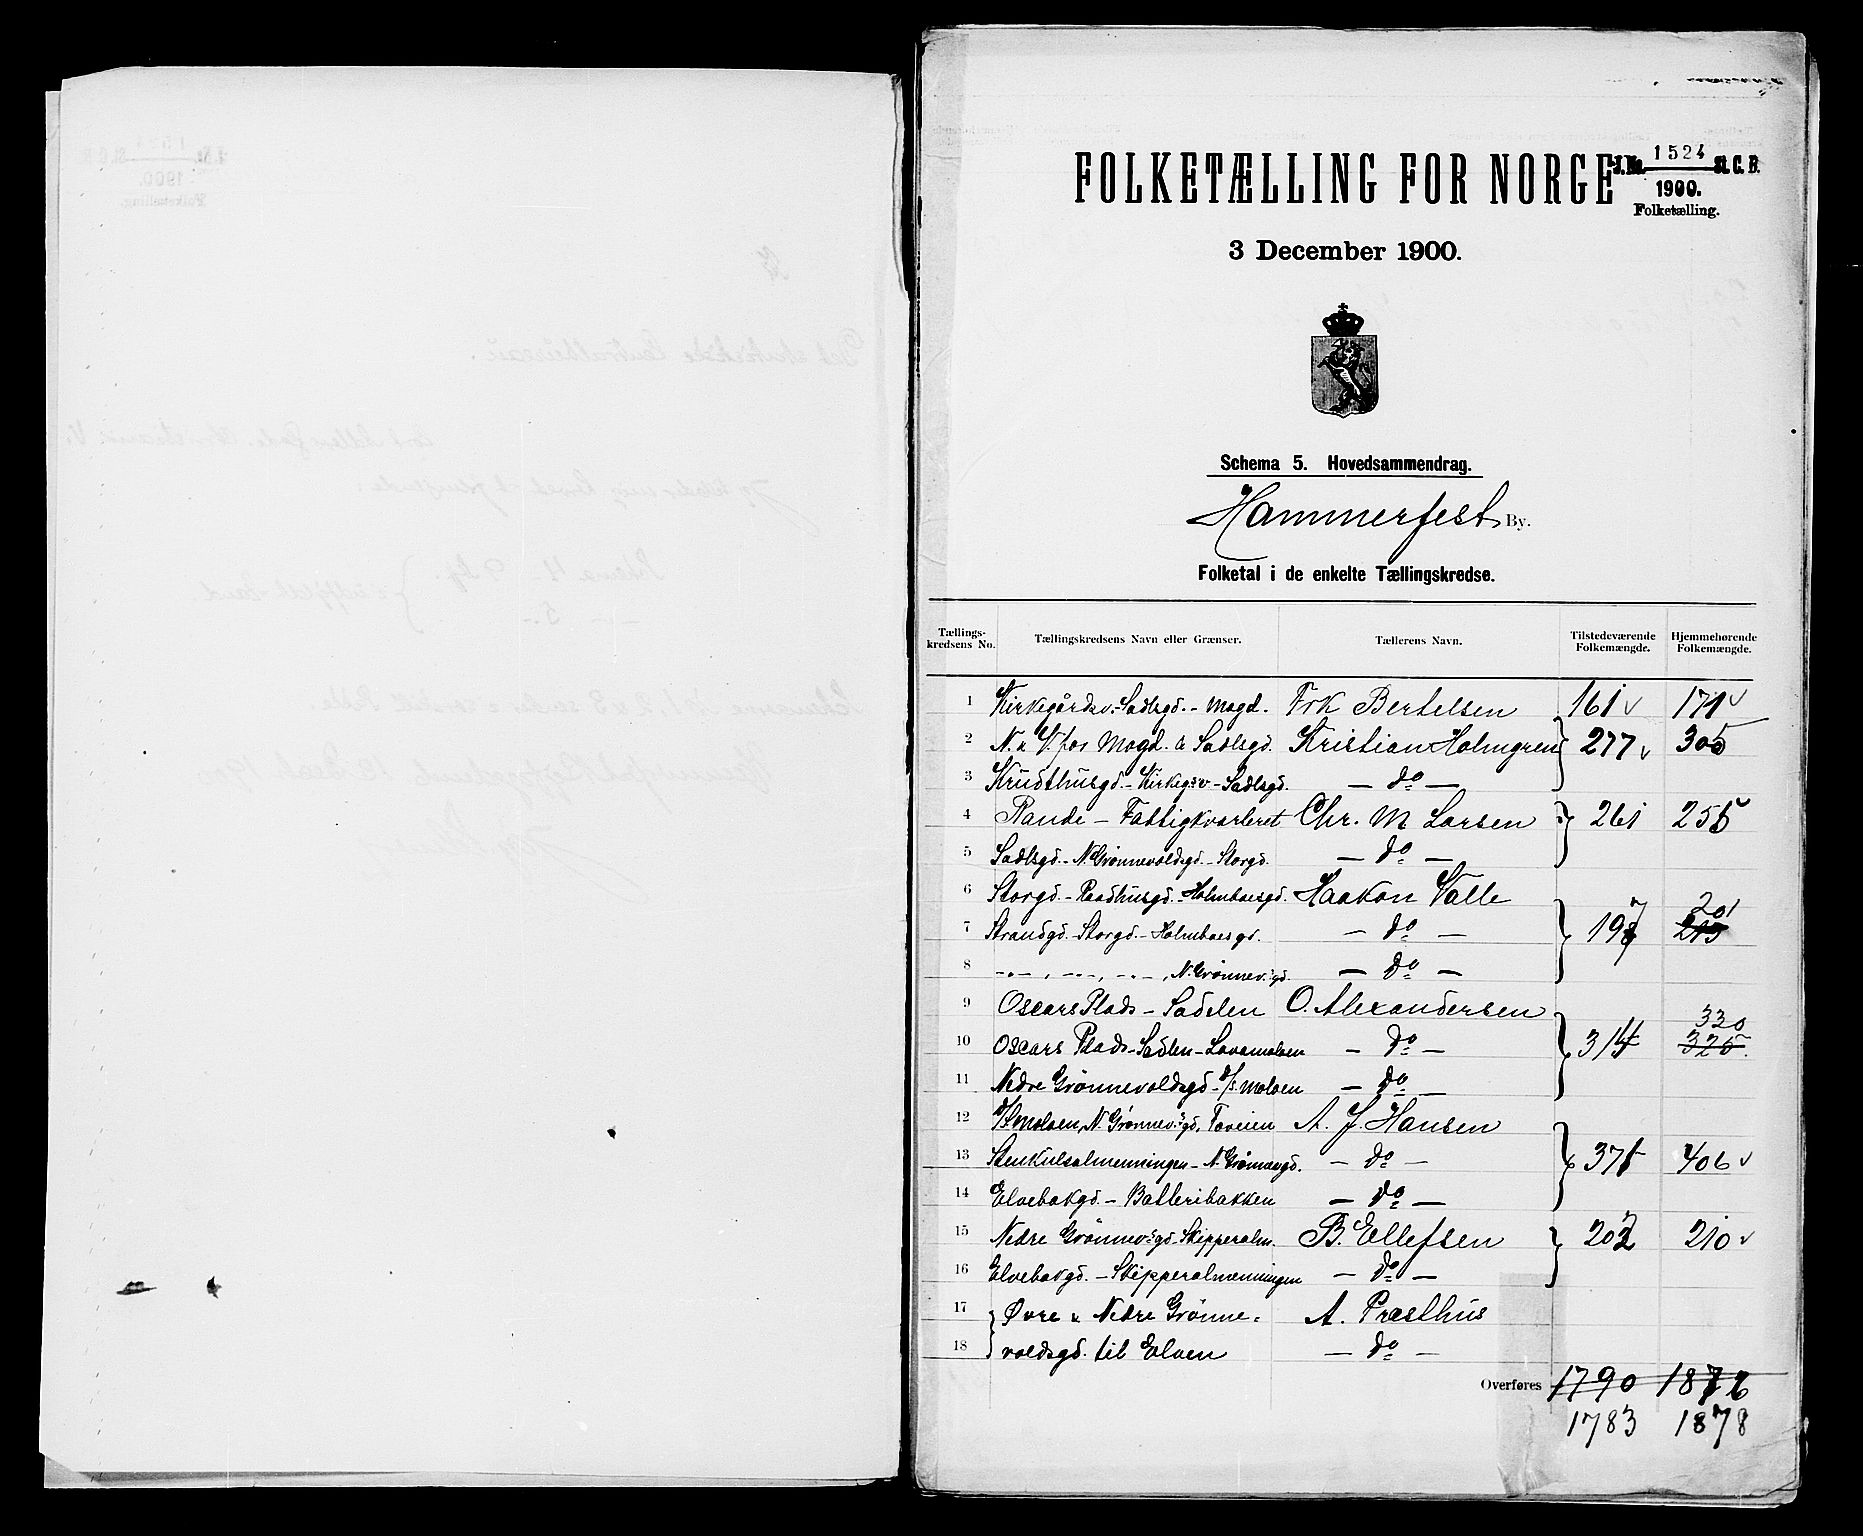 FOLKETÆLLING FOR NORGE
J. No. 1524 St. C. B.
1900.
Folketælling.
3 December 1900.
Schema 5. Hovedsammendrag.
Hammerfest By.
Folketal i de enkelte Tællingskredse.
Tællings-kredsens No. Tællingskredsens Navn eller Grænser. Tællerens Navn. Tilstedeværende Folkemængde. Hjemmehørende Folkemængde.
1 Kirkegårdsv.-Sadlsgd.-Magd. Frk Bertelsen 161 171
2 N. & V. for Magd. & Sadlsgd. Kristian Holmgren 277 305
3 Krudthusgd.-Kirkeg.v-Sadlsgd. — do —
4 Rande - Fattigkvarteret Chr. M Larsen 261 255
5 Sadlsgd.-N. Grønnevoldsgd.-Storgd. — do —
6 Storgd.-Raadhusgd.-Holmboesgd. Haakon Valle
7 Strandgd.-Storgd.-Holmboesgd. — do — 197 201 215
8 N. Grønnev.gd. — do —
9 Oscars Plads - Sadelen O. Alexandersen
10 Oscars Plads-Sadlen-Lavamolven — do — 314 320 325
11 Nedre Grønnevoldsgd.-D/S. moloen — do —
12 D/S moloen, N. Grønnev.gd, Foveien A. J. Hansen
13 Stenkulsalmenningen - N. Grønnevgd. — do — 371 406
14 Elvebakgd. - Batteribakken — do —
15 Nedre Grønnev.gd-Skipperalm. B. Ellefsen 202 210
16 Elvebakgd. - Skipperalmenningen — do —
17 Øvre & Nedre Grønne-A. Præsthus
18 voldsgd. til Elven — do —
Overføres 1790 1876
1783 1878